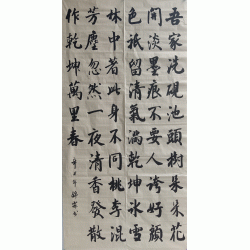 吾家洗硯池頭樹朵朵花
開淡墨痕不要人誇好顏
色祇留清氣滿乾坤冰雪
林中著此身不同桃李混
芳塵忽然一夜清香發散
作乾坤萬里春